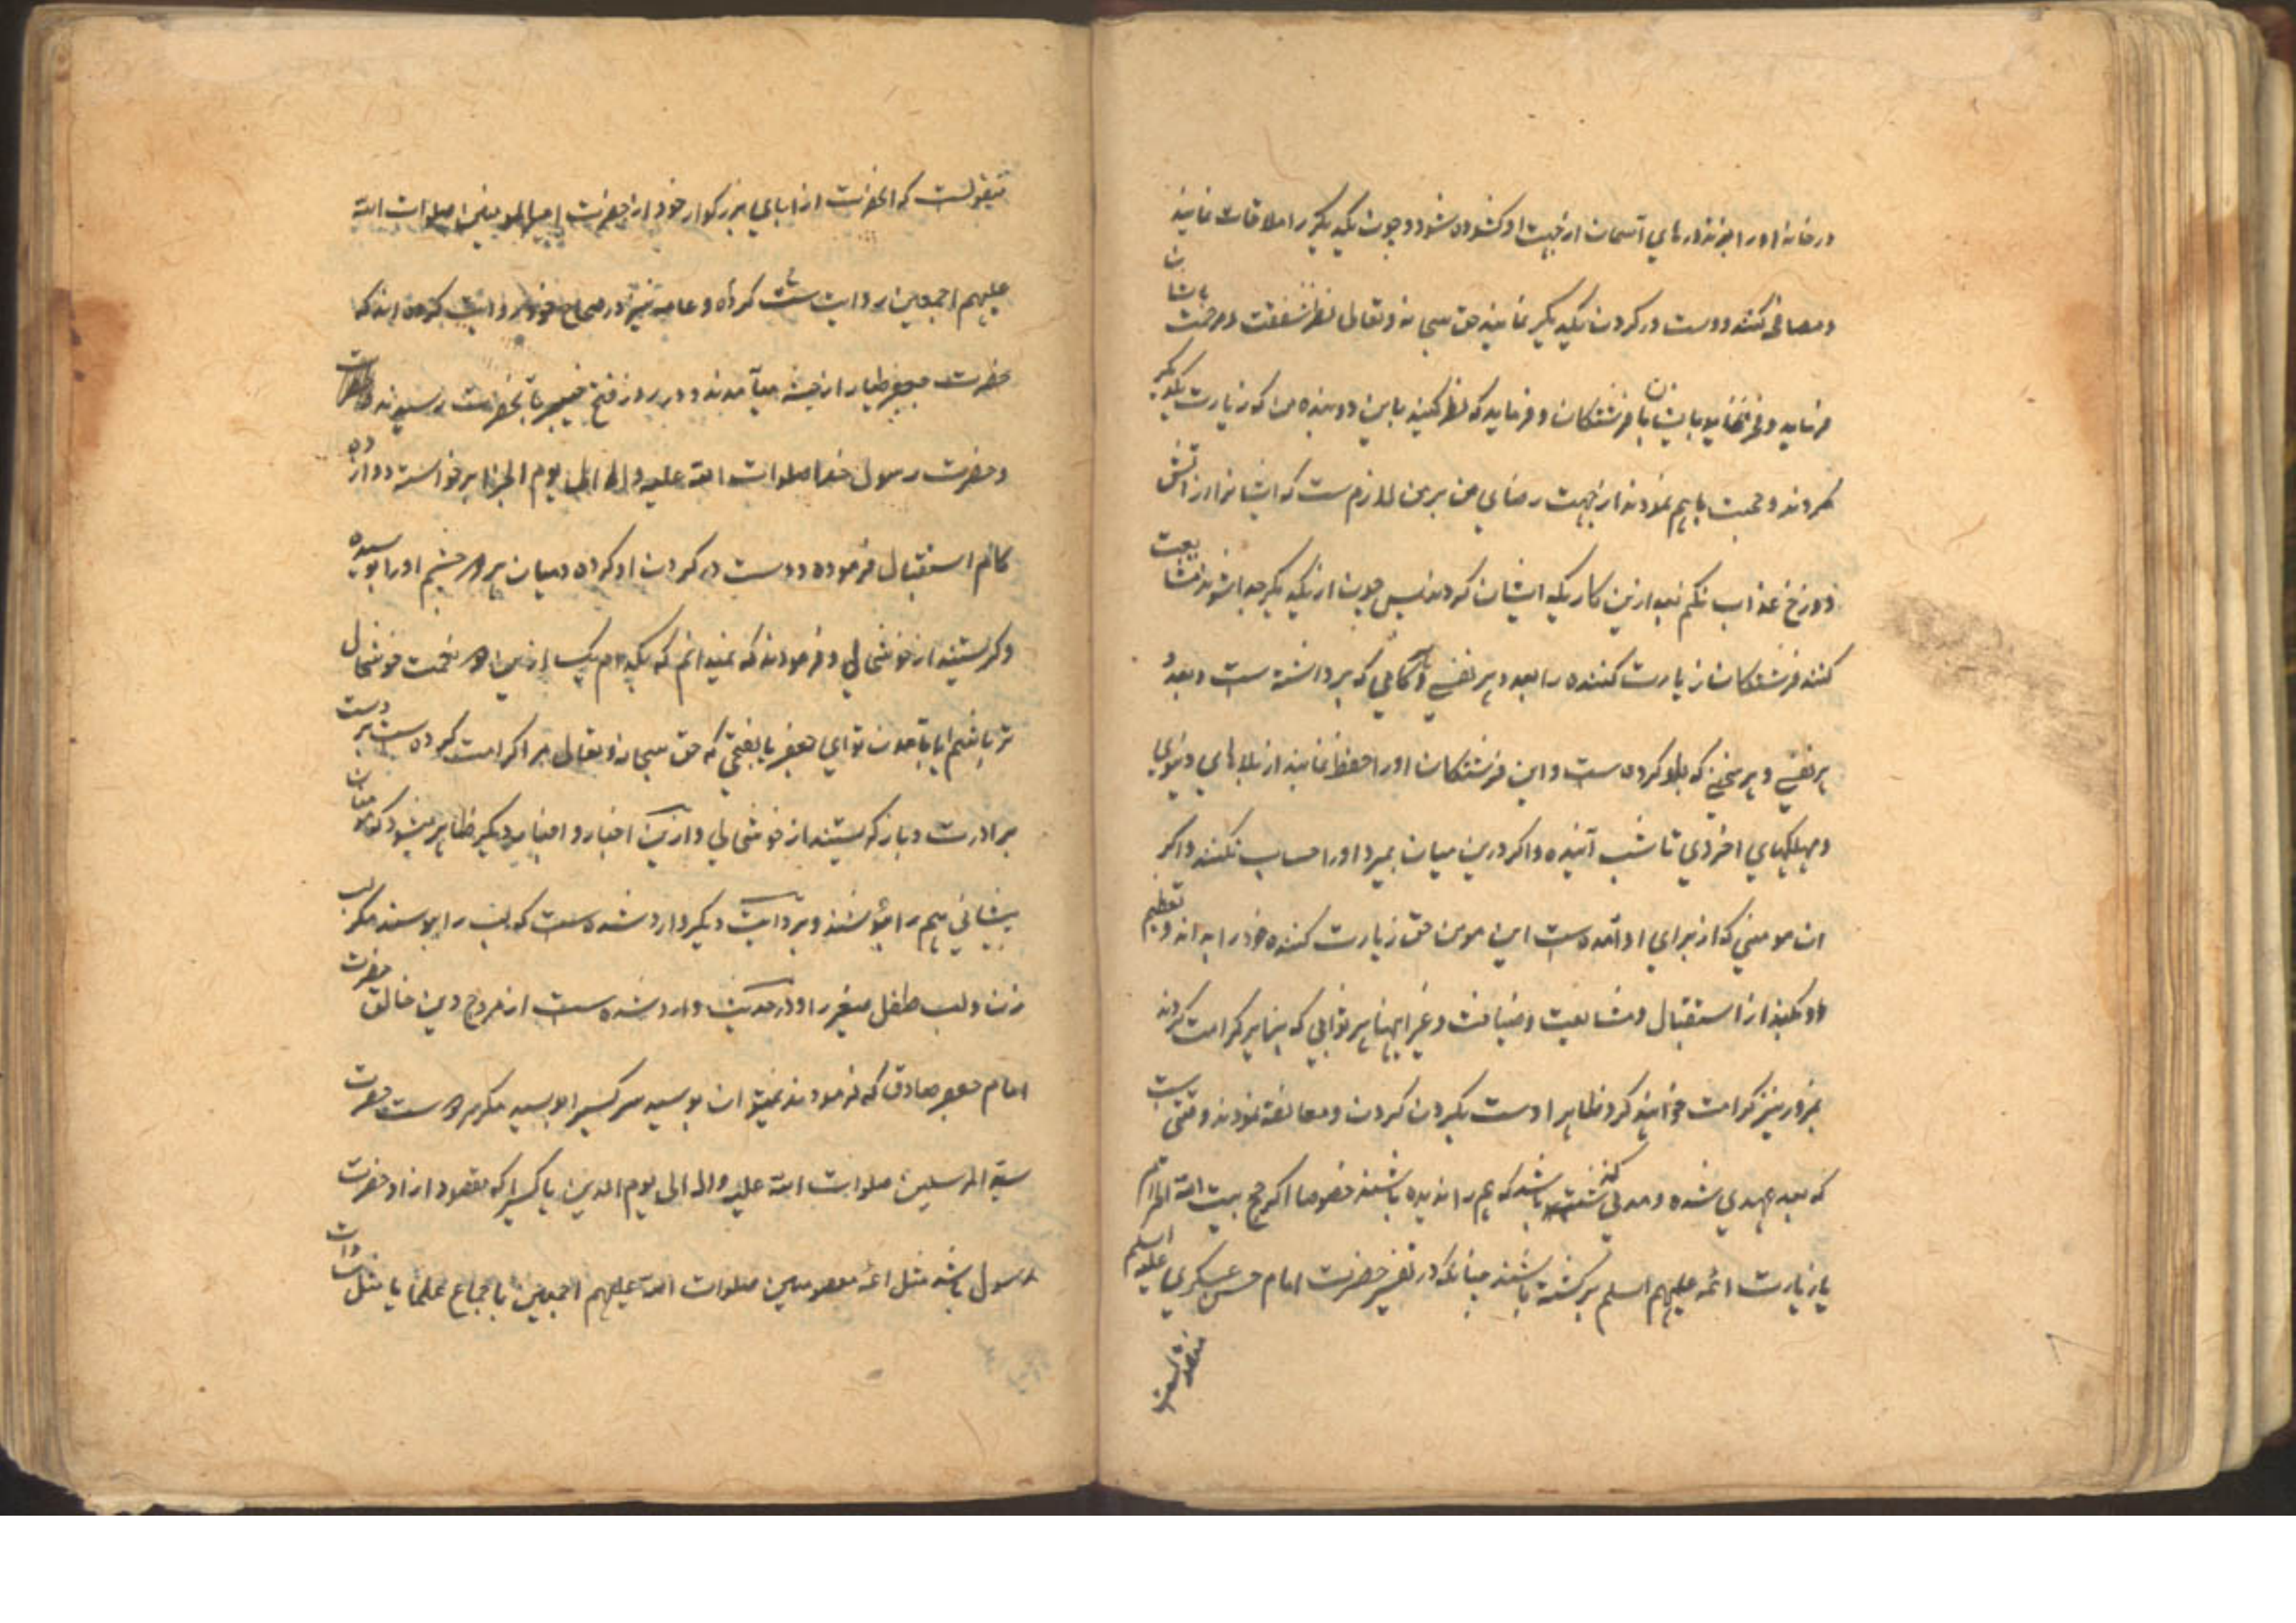 در خانه او را بزند درهای آسمان از جهت او کشوده شود و چون یکدیکر را ملاقات نمایند
و مصافحه کنند و دست در کردن یکدیکر نمایند حق سبحانه و تعالی نظر شفقت و مرحمت بایشان
فرماید و فخر نماید بایشان با فرشتکان و فرماید که نظر کنید باین دو بنده من که زیارت یکدیکر
کردند و محبت باهم نمودند از جهت رضای من بر من لازمست که ایشانرا در آتش
دوزخ عذاب نکنم بعد ازین کاریکه ایشان کردند پس چون از یکدیکر جدا شوند مشایعت
کنند فرشتکان زیارت کننده را بعدد هر نفسی و کامی که برداشته ست و بعدد
هر نفسی و هر سخنی که کرده ست و این فرشتکان او را حفظ نمایند از بلاهای دنیوی
و مهلکهای اخروی تا شب آینده و اکر درین میان بمیرد او را حساب نکنند و اکر
ان مومنی که از برای او آمده ست این مومن حق زیارت کننده خود را بداند و تعظیم
او بکند از استقبال و مشایعت و ضیافت و غیر اینها هر ثوابی که بزایر کرامت کردند
بمزور نیز کرامت خواهند کرد و ظاهرا دست بکردن کردن و معانقه نمودن وقتی ست
که بعد عهدی شده و مدتی کذشته باشد که هم را ندیده باشند خصوصا اکر حج بیت الله الحرام
یا زیارت ائمه علیهم السلم برکشته باشند چنانکه در تفسیر حضرت امام حسن عسکری علیه السلم
منقولست
منقولست که انحضرت از ابای بزرکوار خود از حضرت امیرالمومنین صلوات الله
علیهم اجمعین روایت کرده و عامه نیز در صحاح خود روایت کرده اند که
حضرت جعفر طیار از حبشه میآمدند و در روز فتح خیبر بانحضرت رسیدند
و حضرت رسول خدا صلوات الله علیه و اله الی یوم الجزا برخواسته دوازده
کام استقبال فرموده و دست در کردن او کرده و میان هر دو چشم او را بوسیده
و کریستند از خوشحالی و فرمودند که نمیدانم که بکدام یک ازین دو نعمت خوشحال
تر باشم ایا بامدن تو ای جعفر یا بفتحی که حق سبحانه و تعالی مرا کرامت کرده ست بر دست
برادرت و باز کریستند از خوشحالی و ازین اخبار و اخبار دیکر ظاهر میشود که مومنان
پیشانی هم را ببوسند و بروایت دیکر وارد شده ست که لب را نبوسند مکر لب
زن و لب طفل صغیر را و در حدیث وارد شده ست از مروج دین خالق حضرت
امام جعفر صادق که فرمودند نمیتوان بوسید سر کسی را بوسید مکر سر و دست حضرت
سید المرسلین صلوات الله علیه و اله الی یوم الدین یا کسیرا که مقصود از او حضرت
رسول باشد مثل ائمه معصومین صلوات الله علیهم اجمعین باجماع علما یا مثل سادات